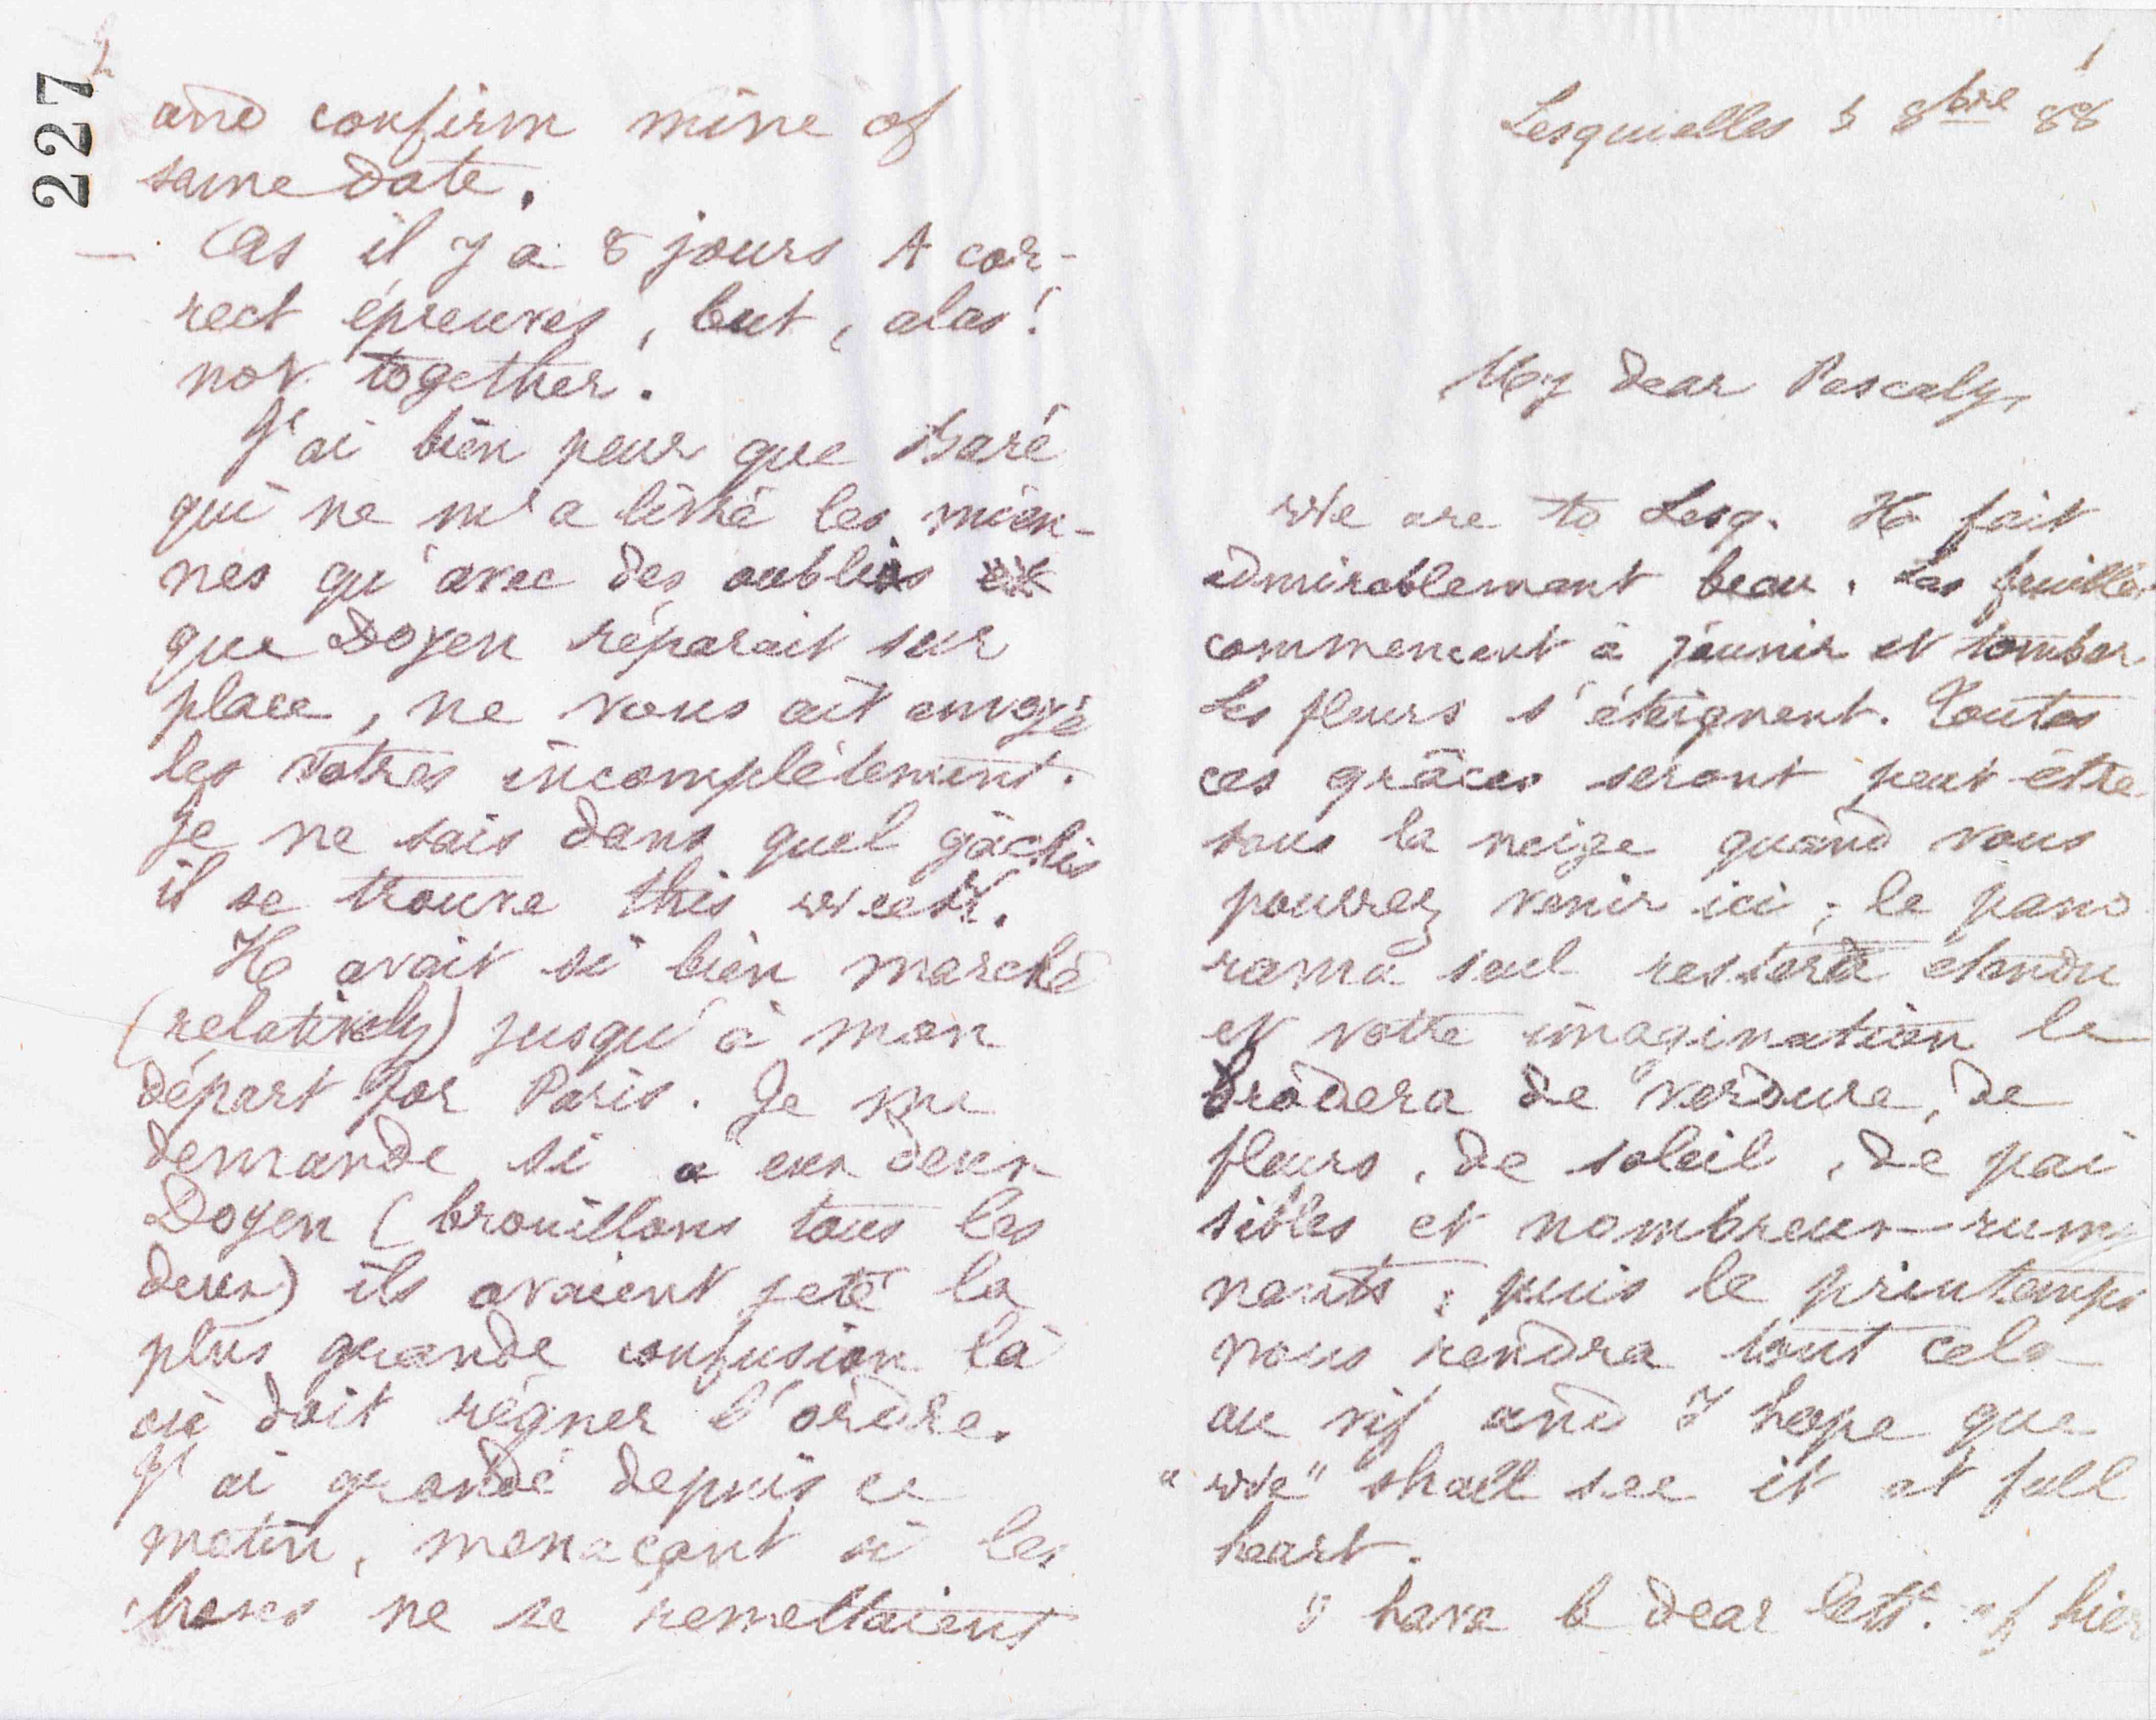 1
Lesquielles 5 8bre 88
My dear Pascaly,
We are to Lesq. He fait
admirablement beau. Les feuilles
commencent à jaunir et tomber.
Les fleurs s'éteignent. Toutes
ces grâces seront peut être
sous la neige quand vous
pourrez venir ici ; le pano
rama seul restera étendu
et votre imagination le
brodera de verdure, de
fleurs, de soleil, de pai
sibles et nombreux rumi
nants ; puis le printemps
nous rendra tout cela
au vif and I hope que
"we" shall see it at full
heart.
I have b dear lett. of hier
2
227
and confirm mine of
same date.
As il y a 8 jours A cor-
rect épreuves, but, alas!
not together.
J'ai bien peur que Baré
qui ne m'a livré les mien-
nes qu'avec des oublis
que Doyen réparait sur
place, ne vous ait envoyé
les vôtres incomplètement.
Je ne sais dans quel gâchis
il se trouve this week.
He avait si bien marché
(relatively) jusqu'à mon
départ for Paris. Je me
demande si à eux deux
Doyen (brouillons tous les
deux) ils avaient jeté la
plus grande confusion là
où doit régner l'ordre.
J'ai grondé depuis ce
matin, menaçant si les
choses ne se remettaient